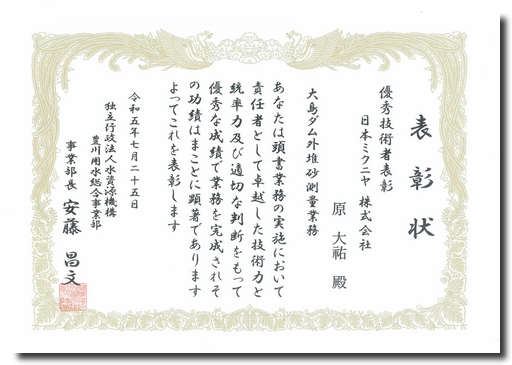 表彰状
優秀技術者表彰
日本ミクニヤ 株式会社
原 大祐 殿
大島ダム外堆砂測量業務
あなたは頭書業務の実施において
責任者として卓越した技術力と
統率力及び適切な判断をもって
優秀な成績で業務を完成されそ
の功績はまことに顕著であります
よってこれを表彰します
令和五年七月二十五日
独立行政法人水資源機構
豊川用水総合事業部
事業部長 安藤 昌文